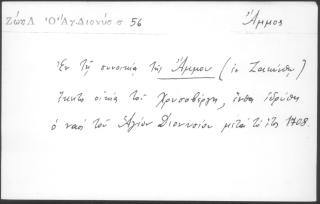 Ζώη Λ Ὁ Ἅγ. Διονύσ σ 56
Ἄμμος
Ἐν τῇ συνοικίᾳ τῆς Ἄμμου (ἐν Ζακύνθῳ)
ἔκειτο οἰκία τοῦ Χρυσοβέργη, ἔνθα ἱδρύθη
ὁ ναὸς τοῦ Ἁγίου Διονυσίου μετὰ τὸ ἔτος 1708